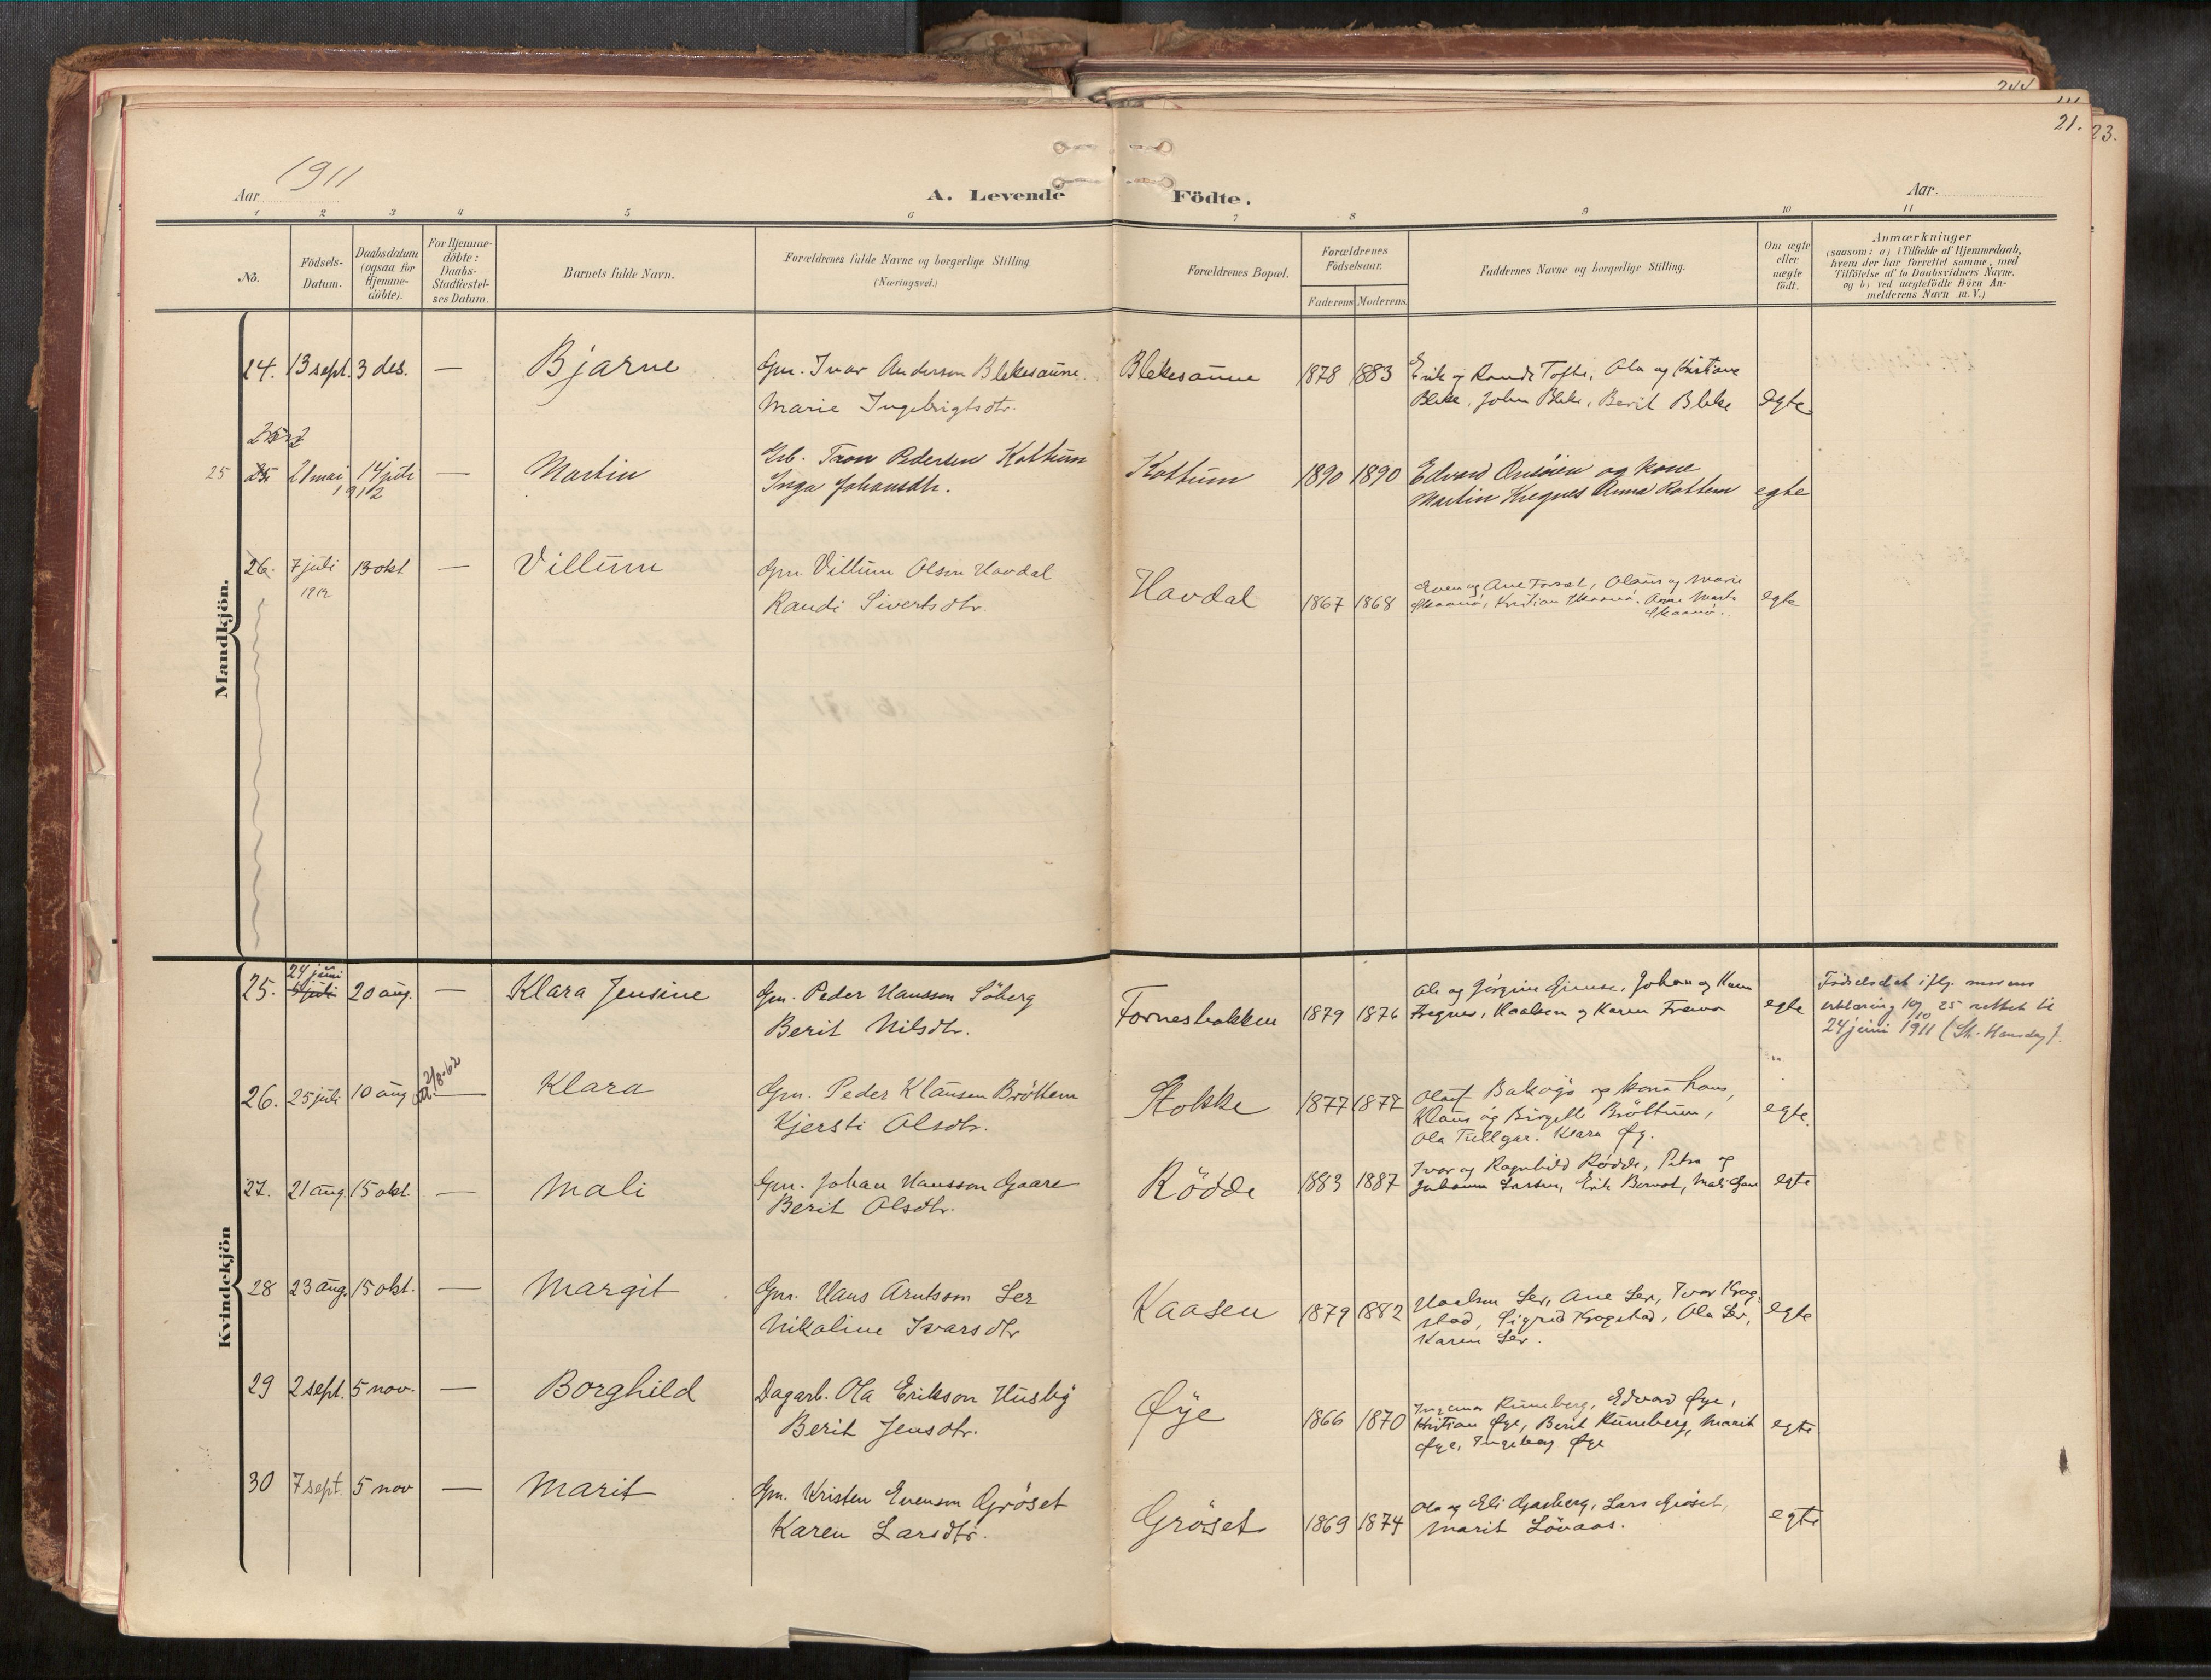 244
21.
23.
Aar 1911
A. Levende Födte.
Aar.
1 2 3 4 5 6 7 8 9 10 11
No.
Födsels-
Datum.
Daabsdatum
(ogsaa for
Hjemme-
döbte).
For Hjemme-
döbte:
Daabs-
Stadfæstel-
ses Datum.
Barnets fulde Navn.
Forældrenes fulde Navne og borgerlige Stilling.
(Næringsvei.)
Forældrenes Bopæl.
Forældrenes
Födselsaar.
Faderens Moderens
Faddernes Navne og borgerlige Stilling.
Om ægte
eller
uægte
födt.
Anmærkninger
(saasom: a) i Tilfælde af Hjemmedaab,
hvem der har forrettet samme, med
Tilföielse af to Daabsvidners Navne.
og b) ved uægtefödte Börn An-
melderens Navn m. V.)
Mandkjön.
24. 13 sept. 3 des. — Bjarne Gm. Ivar Anderson Blekesaune Blekesaune 1878 1883 Erik og Randi Tofte, Ola og Kristiane
Marie Ingebrigtsdtr. Bleke, John Bleke, Berit Bleke egte
25 25 21 mai 14 juli — Martin Grb. Tron Pedersen Kottum Kottum 1890 1890 Edvard Onsöien og kone
1912 Inga Johansdtr. Martin Kregnes Anna Rottem egte
26. 7 juli 13 okt — Villum Gm. Villum Olson Havdal Havdal 1867 1868 Even og Ane Forset, Olaus og Marie
1912 Randi Sivertsdtr. Skaanö, Kristian Skaanö. Anne Marta egte
Skaanö.
Kvindekjön
24 juni
25. 5 juli 20 aug. — Klara Jensine Gm. Peder Hansson Söberg Forneshakken 1879 1876 Ole og Jörgine Gimse, Johan og Karen
Berit Nilsdtr. Kregnes, Haaken og Karen Fremo egte
Födselsdat iflg. morens
erklæring 10/10 25 rettet til
24 juni 1911 (St. Hansdag).
2/8-62
26. 25 juli 10 aug — Klara Gm. Peder Klausen Bröttem Stokke 1877 1877 Olaf Baköyö og kona hans,
Kjersti Olsdtr. Klaus og Birgitte Bröttum, egte.
Ola Tullgar. Klara Øy.
27. 21 aug. 15 okt. — Mali Gm. Johan Hansson Gaare Rödde 1883 1887 Ivar og Ragnhild Rödde, Petra og
Berit Olsdtr. Johanna Larsen, Erik Bernot, Mali Gaare egte
28 23 aug. 15 okt. — Margit Gm. Hans Arntsson Ler Kaasen 1879 1882 Haaken Ler, Ane Ler, Ivar Krog-
Nikoline Ivarsdtr stad, Sigrid Krogstad, Ola Ler, egte
Karen Ler.
29 2 sept. 5 nov. — Borghild Dagarb. Ola Erikson Husby Øye 1866 1870 Ingemar Rumberg, Edvard Øye,
Berit Jensdtr. Kristian Øye, Berit Rumberg, Marit egte
Øye, Ingeborg Øye
30 7 sept. 5 nov — Marit Gm. Kristen Evenson Gröset Gröset 1869 1874 Ola og Eli Gasberg, Lars Gröset,
Karen Larsdtr. Marit Lövaas. egte